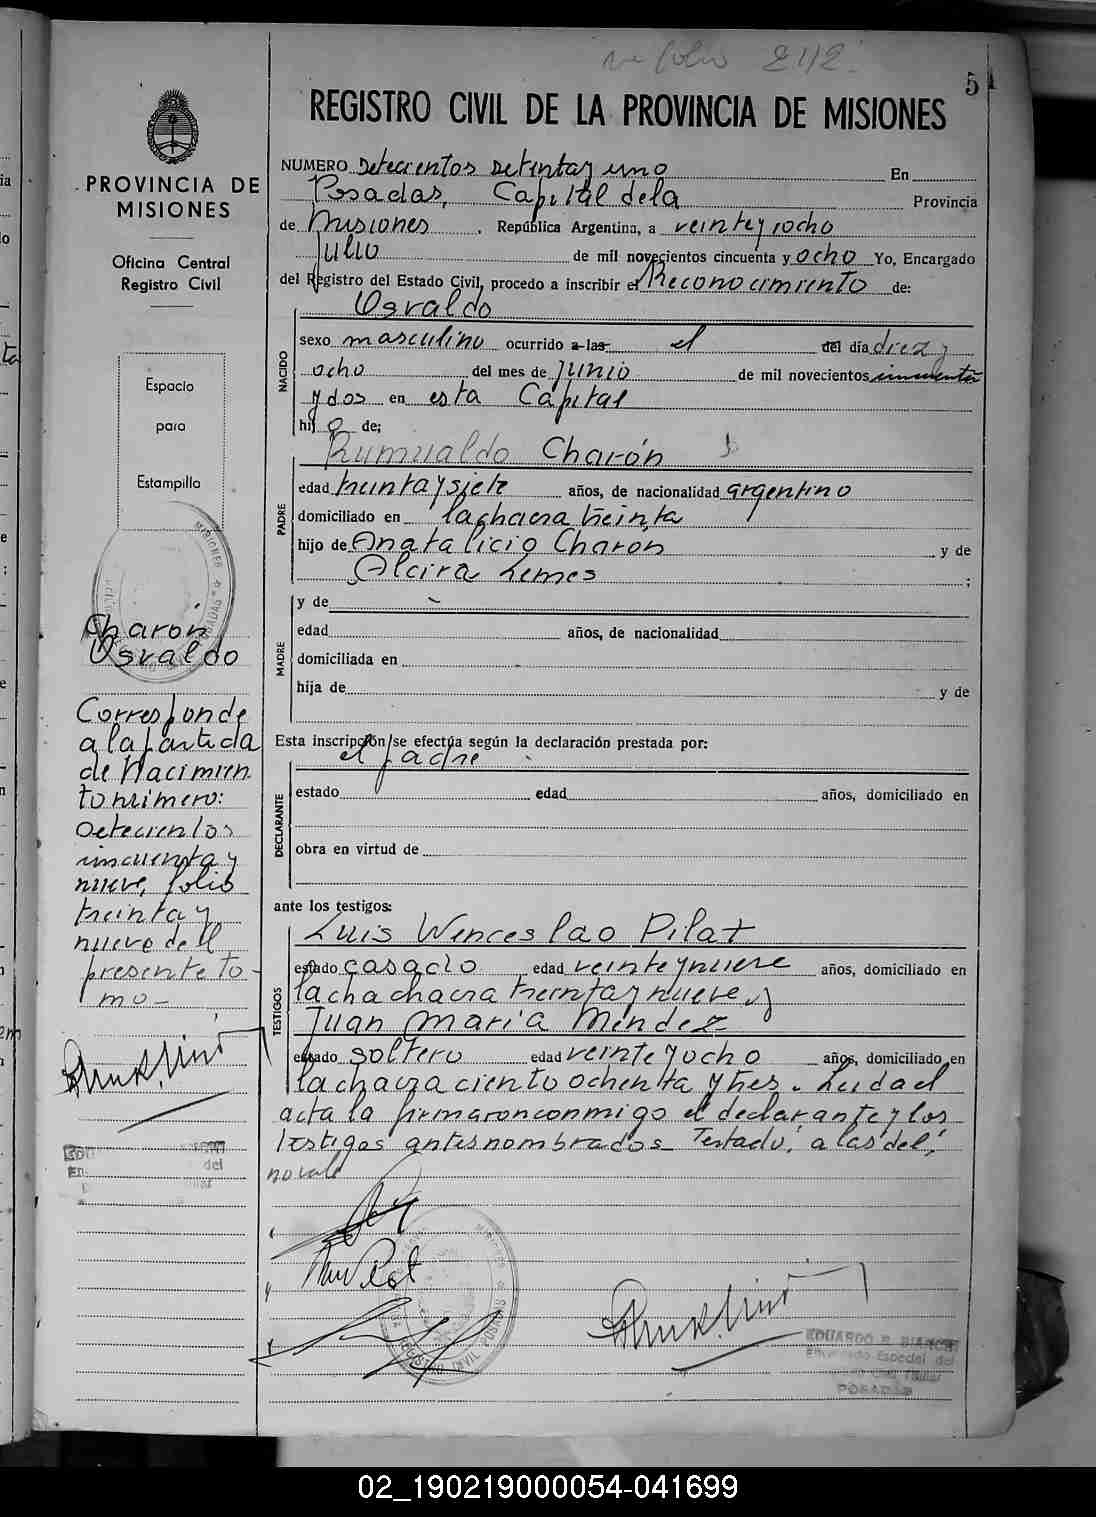 ve folio 242.
5
REGISTRO CIVIL DE LA PROVINCIA DE MISIONES
PROVINCIA DE
MISIONES
Oficina Central
Registro Civil
Espacio
para
Estampilla
Charón
Osvaldo
Corresponde
a la partida
de Nacimien
to número:
Setecientos
cincuenta y
nueve, folio
treinta y
nueve del
presente to-
mo-
NUMERO Setecientos setenta y uno En
Posadas, Capital de la Provincia
de Misiones. República Argentina, a veinte y ocho
Julio de mil novecientos cincuenta y ocho Yo, Encargado
del Registro del Estado Civil, procedo a inscribir el Reconocimiento de:
Osvaldo
NACIDO
sexo masculino ocurrido a las el del día diez y
ocho del mes de Junio de mil novecientos cincuenta
y dos en esta Capital
hijo de:
Rumualdo Charón
PADRE
edad treinta y siete años, de nacionalidad argentino
domiciliado en la chacra treinta
hijo de Anatalicio Charón y de
Alcira Lemes ;
MADRE
y de
edad años, de nacionalidad
domiciliada en
hija de y de
Esta inscripción se efectúa según la declaración prestada por:
el padre
DECLARANTE
estado edad años, domiciliado en
obra en virtud de
ante los testigos:
Luis Wenceslao Pilat
TESTIGOS
estado casado edad veinte y nueve años, domiciliado en
la chachacra treinta y nueve y
Juan María Méndez
estado soltero edad veinte y ocho años, domiciliado en
la chacra ciento ochenta y tres. Leida el
acta la firmaron conmigo el declarante y los
testigos antes nombrados. Testado: a las del,
no vale
MISIONES
REGISTRO CIVIL POSADAS
EDUARDO R. BIANCHI
Encargado Especial del
POSADAS
02_190219000054-041699